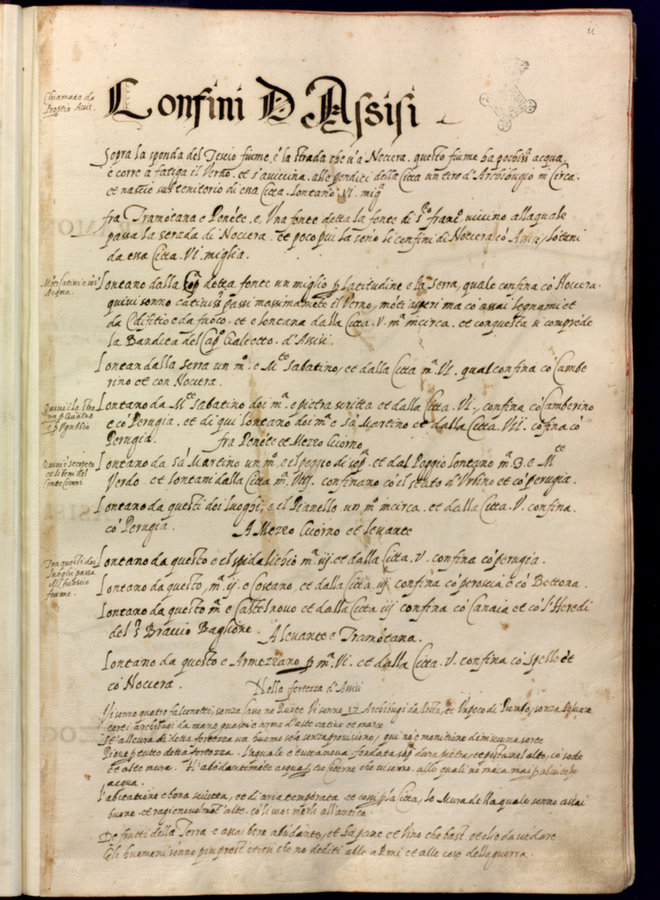 Confini D Assisi
Chiamato da
Sopra la sponda del Tescio fiume, è la strada che va à Nocera. questo fiume ha pochiss.ª acqua,
e corre à fatiga il Verno. et s'avicina alle pendici della Città un tiro d'Archibugio in Circa.
et nasce sul tenitorio di essa Città. lontano VI. mig.ª
fra Tramōtana e Ponēte. e Una fonte detta la fonte di vicino alla quale
passa la strada di Nocera. et poco piu la sono li confini di Nocera cō Assisi, lōtani
da essa Citta. VI. miglia.
Acqua.
Lontano dalla detta fonte un miglio p latitudine e la serra, quale confina cō Nocera.
quivi sonno cativiss.ⁱ passi massimamēte il Verno, mōti asperi ma cō assai legnami et
da Edifitio e da fuoco. et e lontana dalla Citta. V. m.ª incirca. et con questa si comprēde
la Bandita del Cap.º Galeotto. d'Assisi.
Lontan dalla serra un m.º e M.te Sabatino, et dalla Città m.ª VI. qual confina cō Came
rino et con Nocera.
Lontano da M.te Sabatino doi m.ª e pietra scritta et dalla Citta. VI., confina cō Camberino
e cō Perugia. et di qui lontano doi m.ª e Sā Martino et dalla Citta VII. cōfina cō
Perugia. fra Ponēte et Mezzo Giorno
Quivi è secreto
et li beni del
Lontano da Sā Martino un m.º e il poggio di sop.ª et dal Poggio lontano m.ª 3. e M.te
Verdo. et lontani dalla Citta m.ª VIIJ. confinano cō il stato d'Urbino et cō perugia.
Lontano da questi doi luoghi, e il Pianello un m.º incirca. et dalla Citta. V. confina.
cō Perugia. A Mezzo Giorno et levante
Tra questi doi
luoghi passa
il Chiascio
fiume.
Lontano da questo e el spidalichio m.ª ij. et dalla Citta. V. confina cō perugia.
Lontano da questo, m.ª ij. e Costano, et dalla Citta. iij. confina cō peroscia e cō Bettona.
Lontano da questo m.º e Castelnovo et dalla Citta iij confina cō Canaia et cō l'Heredi
del S.r Braccio Baglione. A levante e Tramōtana.
Lontano da questo e Armezzano p m.ª VI. et dalla Citta. V. confina cō spello et
cō Nocera. Nella fortezza d'Assisi
Vi sonno quatro falconetti, senza cave no Ruote. Vi sonno 17 Archibugi da posta, et Un poco di Piombo, senza polvere
certi archibugi da mano puochi e armo d'aste cative et marce
St'alla cura di detta fortezza un huomo solo senza provisione, qui nō e monitione de nisuna sorte
Piove p tutto detta fortezza. la quale e tutta nova. fondata sop.ª dura pietra, et posta nel'alto, cō sode
et alte mura. V'e abidantemēte acqua, p tre citerne che vi sonno. alle quali nō māca mai
acqua.
L'abitatione e bona sciutta, et di aria temporata et cosi p la Citta, le Mura della quale sonno assai
buone. et ragionevolmēt'alte. cō li suoi merli all'antica.
De frutti della Terra e assai bene abidante, et ha pane et Vino che basti et olio da vēdare
Gli huomeni sonno piu presto che no dediti alle armi et alle cose della guerra.